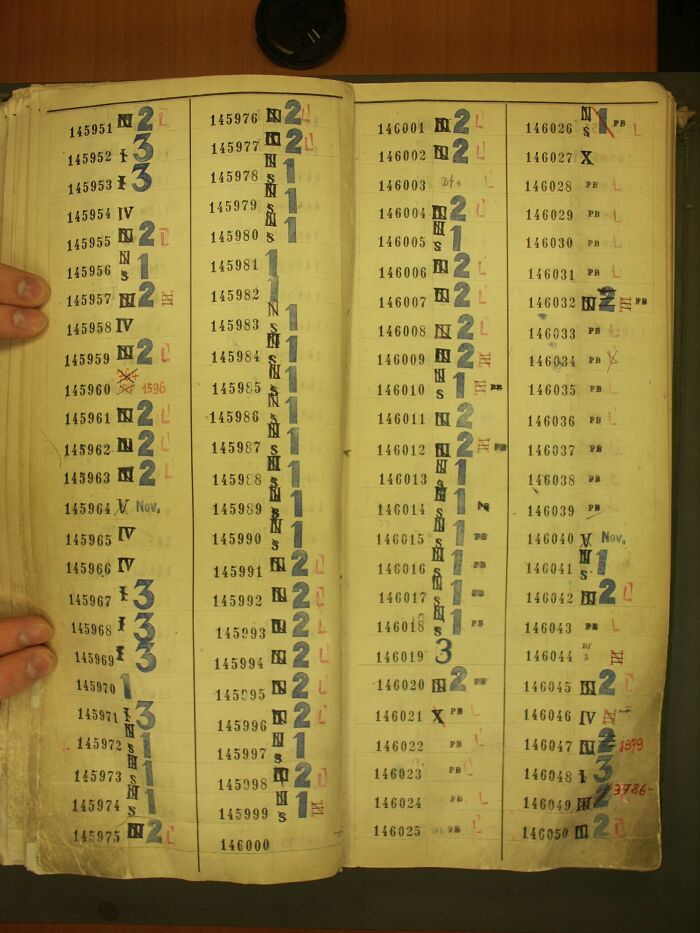 145951 N 2 L
145952 I 3
145953 I 3
145954 IV
145955 N 2 L
145956 N S 1
145957 N 2 III
145958 IV
145959 N 2 L
145960 1596
145961 N 2 L
145962 N 2 L
145963 N 2 L
145964 V Nov.
145965 IV
145966 IV
145967 I 3
145968 I 3
145969 I 3
145970 1
145971 I 3
145972 N S 1
145973 N S 1
145974 N S 1
145975 N 2 L
145976 N 2 L
145977 N 2 L
145978 N S 1
145979 N S 1
145980 N S 1
145981 1
145982 1
145983 N S 1
145984 N S 1
145985 N S 1
145986 N S 1
145987 N S 1
145988 N S 1
145989 N S 1
145990 N S 1
145991 N 2 L
145992 N 2 L
145993 N 2 L
145994 N 2 L
145995 N 2 L
145996 N 2 L
145997 N S 1
145998 N 2 L
145999 N S 1 III
146000
146001 N 2 L
146002 N 2 L
146003 L
146004 N 2 L
146005 N S 1
146006 N 2 L
146007 N 2 L
146008 N 2 L
146009 N 2 III
146010 N S 1 III PB
146011 N 2
146012 N 2 III PB
146013 N S 1
146014 N S 1 PB
146015 N S 1 PB
146016 N S 1 PB
146017 N S 1 PB
146018 N S 1 PB
146019 3
146020 N 2 PB
146021 X PB L
146022 PB L
146023 PB L
146024 PB L
146025 PB L
146026 N S 1 PB L
146027 X
146028 PB L
146029 PB L
146030 PB L
146031 PB L
146032 N 2 III PB
146033 PB L
146034 PB
146035 PB L
146036 PB L
146037 PB
146038 PB
146039 PB
146040 V Nov.
146041 N S 1
146042 N 2 L
146043 PB L
146044 3 III
146045 N 2 L
146046 IV
146047 N 2 1879
146048 I 3
146049 N 2 3786-
146050 N 2 L